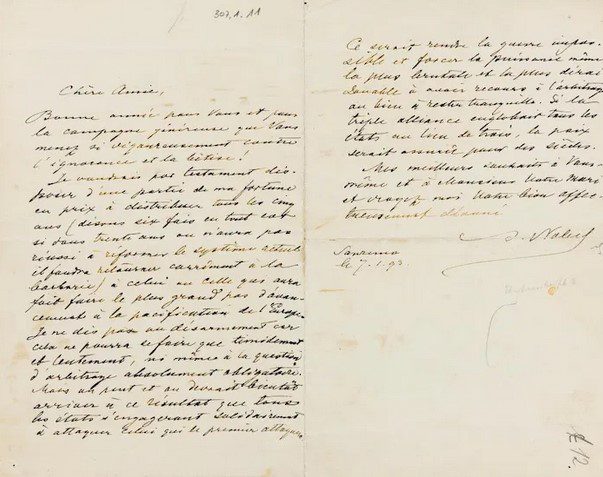 307.A.11
Chère Amie,
Bonne année pour Vous et pour
la campagne généreuse que Vous
menez si vigoureusement contre
l'ignorance et la bêtise!
Je voudrais par testament dis-
poser d'une partie de ma fortune
en prix à distribuer tous les cinq
ans (disons six fois en tout car
si dans trente ans on n'aura pas
réussi à réformer le système actuel
il faudra retourner carrément à la
barbarie) à celui ou celle qui aura
fait faire le plus grand pas d'avan-
cement à la pacification de l'Europe.
Je ne dis pas au désarmement car
cela ne pourra se faire que timidement
et lentement, ni même à la question
d'arbitrage absolument obligatoire.
Mais on peut et on devrait bientôt
arriver à ce résultat que tous
les états s'engageront solidairement
à attaquer celui qui le premier attaque.
Ce serait rendre la guerre impos-
sible et forcer la puissance même
la plus brutale et la plus dérai-
sonnable à avoir recours à l'arbitrage
ou bien à rester tranquille. Si la
triple alliance englobait tous les
états au lieu de trois, la paix
serait assurée pour des siècles.
Mes meilleurs souhaits à Vous
même et à Monsieur Votre Mari
et croyez moi Votre bien affec-
tueusement dévoué
A. Nobel
Sanremo
le 7.1.93.